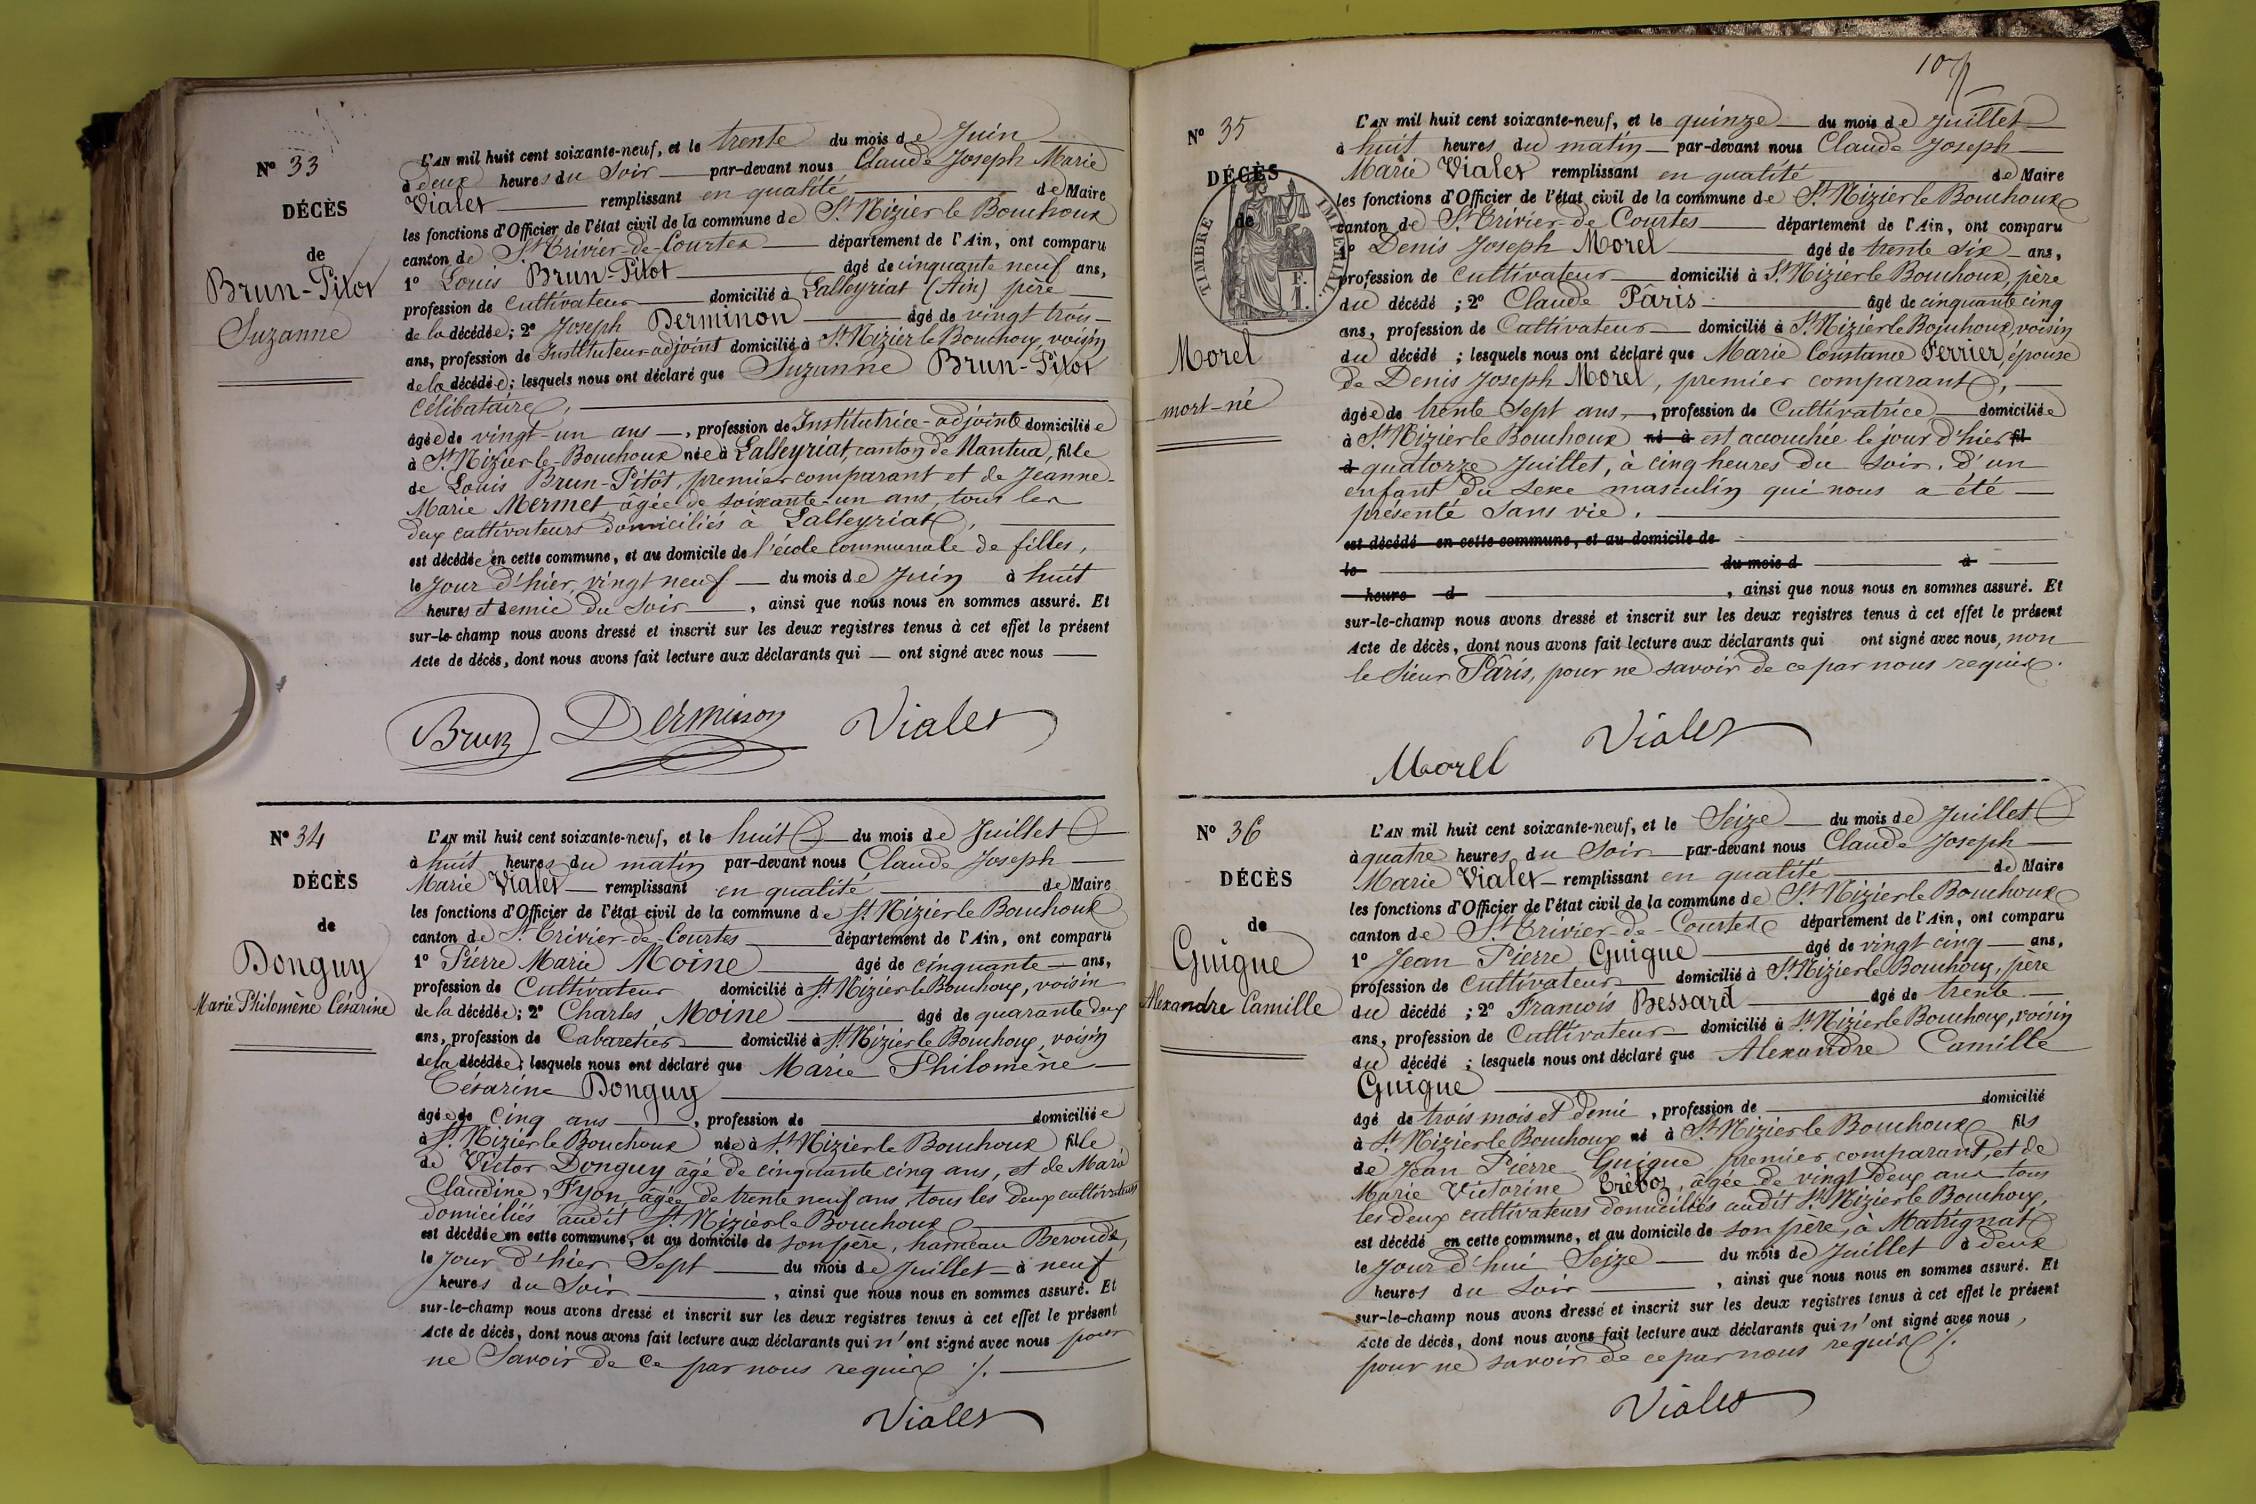 N° 33
DÉCÈS
de
Brun-Pitot
Suzanne
L'AN mil huit cent soixante-neuf, et le trente du mois de Juin
à deux heures du Soir par-devant nous Claude Joseph Marie
Vialet remplissant en qualité de Maire
les fonctions d'Officier de l'état civil de la commune de St Nizier le Bouchoux
canton de St Trivier-de-Courtes département de l'Ain, ont comparu
1° Louis Brun-Pitot âgé de cinquante neuf ans,
profession de Cultivateur domicilié à Lalleyriat (Ain) père
de la décédée; 2° Joseph Derminon âgé de vingt trois
ans, profession de Instituteur-adjoint domicilié à St Nizier le Bouchoux, voisin
de la décédée; lesquels nous ont déclaré que Suzanne Brun-Pitot
célibataire,
âgée de vingt-un ans, profession de Institutrice-adjointe domiciliée
à St Nizier-le-Bouchoux née à Lalleyriat, canton de Nantua, fille
de Louis Brun-Pitôt, premier comparant et de Jeanne-
Marie Mermet, âgée de soixante-un ans, tous les
deux cultivateurs domiciliés à Lalleyriat,
est décédée en cette commune, et au domicile de l'école communale de filles,
le jour d'hier, vingt neuf du mois de Juin à huit
heures et demie du soir, ainsi que nous nous en sommes assuré. Et
sur-le-champ nous avons dressé et inscrit sur les deux registres tenus à cet effet le présent
Acte de décès, dont nous avons fait lecture aux déclarants qui ont signé avec nous
Brun Derminon Vialet
N° 34
DÉCÈS
de
Donguy
Marie Philomène Césarine
L'AN mil huit cent soixante-neuf, et le huit du mois de Juillet
à huit heures du matin par-devant nous Claude Joseph
Marie Vialet remplissant en qualité de Maire
les fonctions d'Officier de l'état civil de la commune de St Nizier le Bouchoux
canton de St Trivier-de-Courtes département de l'Ain, ont comparu
1° Pierre Marie Moine âgé de cinquante ans,
profession de Cultivateur domicilié à St Nizier le Bouchoux, voisin
de la décédée; 2° Charles Moine âgé de quarante deux
ans, profession de Cabaretier domicilié à St Nizier le Bouchoux, voisin
de la décédée; lesquels nous ont déclaré que Marie Philomène
Césarine Donguy
âgée de cinq ans, profession de domiciliée
à St Nizier le Bouchoux née à St Nizier le Bouchoux fille
de Victor Donguy âgé de cinquante cinq ans, et de Marie
Claudine Fyon âgée de trente neuf ans, tous les deux cultivateurs
domiciliés audit St Nizier le Bouchoux
est décédée en cette commune, et au domicile de son père, hameau Beroudx,
le jour d'hier Sept du mois de Juillet à neuf
heures du soir, ainsi que nous nous en sommes assuré. Et
sur-le-champ nous avons dressé et inscrit sur les deux registres tenus à cet effet le présent
Acte de décès, dont nous avons fait lecture aux déclarants qui n'ont signé avec nous pour
ne savoir de ce par nous requis ./.
Vialet
N° 35
DÉCÈS
de
TIMBRE IMPÉRIAL.
F.
1.
Morel
mort-né
L'AN mil huit cent soixante-neuf, et le quinze du mois de Juillet
à huit heures du matin par-devant nous Claude Joseph
Marie Vialet remplissant en qualité de Maire
les fonctions d'Officier de l'état civil de la commune de St Nizier le Bouchoux
canton de St Trivier-de-Courtes département de l'Ain, ont comparu
1° Denis Joseph Morel âgé de trente six ans,
profession de Cultivateur domicilié à St Nizier le Bouchoux, père
du décédé; 2° Claude Pâris âgé de cinquante cinq
ans, profession de Cultivateur domicilié à St Nizier le Bouchoux, voisin
du décédé; lesquels nous ont déclaré que Marie Constance Ferrier, épouse
de Denis Joseph Morel, premier comparant,
âgée de trente sept ans, profession de Cultivatrice domiciliée
à St Nizier le Bouchoux né à est accouchée le jour d'hier fil
d quatorze Juillet, à cinq heures du soir, d'un
enfant du sexe masculin qui nous a été
présenté sans vie.
est décédé en cette commune, et au domicile de
le du mois d à
heure d, ainsi que nous nous en sommes assuré. Et
sur-le-champ nous avons dressé et inscrit sur les deux registres tenus à cet effet le présent
Acte de décès, dont nous avons fait lecture aux déclarants qui ont signé avec nous, non
le Sieur Pâris, pour ne savoir de ce par nous requis.
Morel Vialet
N° 36
DÉCÈS
de
Guigue
Alexandre Camille
L'AN mil huit cent soixante-neuf, et le Seize du mois de Juillet
à quatre heures du Soir par-devant nous Claude Joseph
Marie Vialet remplissant en qualité de Maire
les fonctions d'Officier de l'état civil de la commune de St Nizier le Bouchoux
canton de St Trivier-de-Courtes département de l'Ain, ont comparu
1° Jean Pierre Guigue âgé de vingt cinq ans,
profession de Cultivateur domicilié à St Nizier le Bouchoux, père
du décédé; 2° Francois Bessard âgé de trente
ans, profession de Cultivateur domicilié à St Nizier le Bouchoux, voisin
du décédé; lesquels nous ont déclaré que Alexandre Camille
Guigue
âgé de trois mois et demi, profession de domicilié
à St Nizier le Bouchoux né à St Nizier le Bouchoux fils
de Jean Pierre Guigue premier comparant, et de
Marie Victorine Trèboz, âgée de vingt deux ans tous
les deux cultivateurs domiciliés audit St Nizier le Bouchoux,
est décédé en cette commune, et au domicile de son père, à Matrignat
le jour d'hui Seize du mois de Juillet à deux
heures du soir, ainsi que nous nous en sommes assuré. Et
sur-le-champ nous avons dressé et inscrit sur les deux registres tenus à cet effet le présent
Acte de décès, dont nous avons fait lecture aux déclarants qui n'ont signé avec nous,
pour ne savoir de ce par nous requis ./.
Vialet